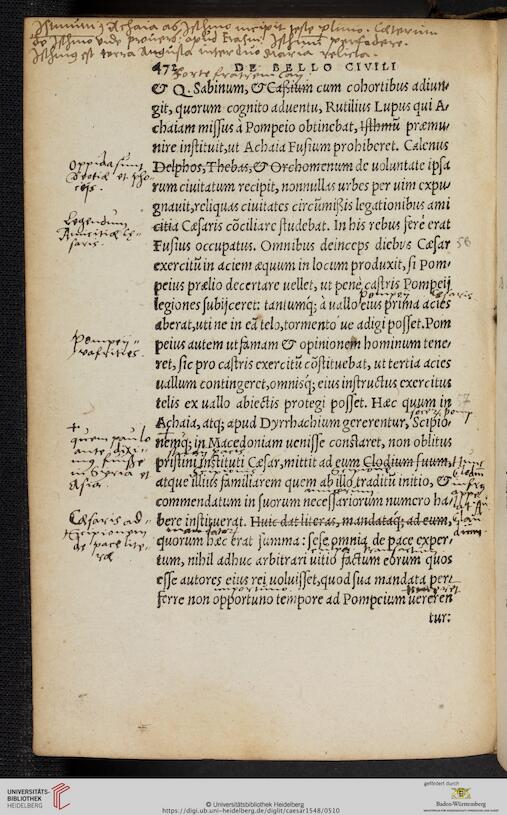 472 DE BELLO CIVILI
& Q. Sabinum, & Caßium cum cohortibus adiun-
git, quorum cognito aduentu, Rutilius Lupus qui A-
chaiam missus à Pompeio obtinebat, Isthmũ præmu-
nire instituit, ut Achaia Fusium prohiberet. Calenus
Delphos, Thebas, & Orchomenum de uoluntate ipsa
rum ciuitatum recipit, nonnullas urbes per uim expu-
gnauit, reliquas ciuitates circũmißis legationibus ami
citia Cæsaris cõciliare studebat. In his rebus ferè erat
Fusius occupatus. Omnibus deinceps diebus Cæsar
exercitũ in aciem æquum in locum produxit, si Pom-
peius prælio decertare uellet, ut penè castris Pompeij
legiones subijceret: tantumq́; à uallo eius prima acies
aberat, uti ne in eã telo, tormento ue adigi posset. Pom
peius autem ut famam & opinionem hominum tene-
ret, sic pro castris exercitũ cõstituebat, ut tertia acies
uallum contingeret, omnisq́; eius instructus exercitus
telis ex uallo abiectis protegi posset. Hæc quum in
Achaia, atq; apud Dyrrhachium gererentur, Scipio-
nemq́; in Macedoniam uenisse constaret, non oblitus
pristini Instituti Cæsar, mittit ad eum Clodium suum,
atque illius familiarem quem ab illo traditũ initio, &
commendatum in suorum necessariorum numero ha-
bere instituerat. Huic dat literas, mandataq́; ad eum,
quorum hæc erat summa: sese omnia de pace exper-
tum, nihil adhuc arbitrari uitio factum eorum quos
esse autores eius rei uoluisset, quod sua mandata per-
ferre non opportuno tempore ad Pompeium uereren
tur:
Oppida sunt
Legendum
Pompeij
quem paulo
ante
in Syria et
Asia.
Cæsaris ad
Scipionem
de pace lite-
ræ
56
57
UNIVERSITÄTS-
BIBLIOTHEK
HEIDELBERG
© Universitätsbibliothek Heidelberg
https://digi.ub.uni-heidelberg.de/diglit/caesar1548/0510
gefördert durch
Baden-Württemberg